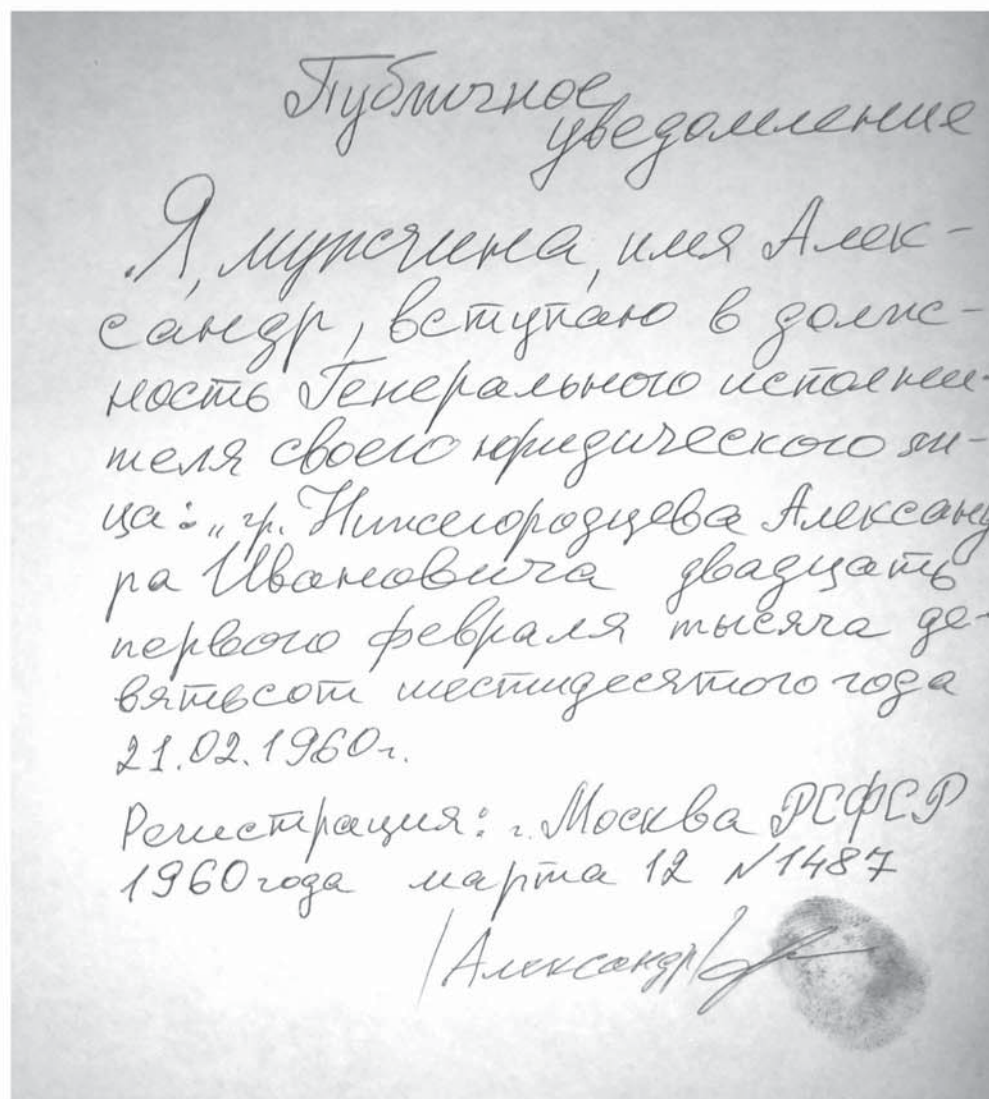 Публичное
уведомление
Я, мужчина, имя Алек-
сандр, вступаю в долж-
ность Генерального исполни-
теля своего юридического ли-
ца: „гр. Нижегородцева Александ
ра Ивановича двадцать
первого февраля тысяча де-
вятьсот шестидесятого года
21.02.1960г.
Регистрация: г. Москва РСФСР
1960 года марта 12 №1487
/Александр/